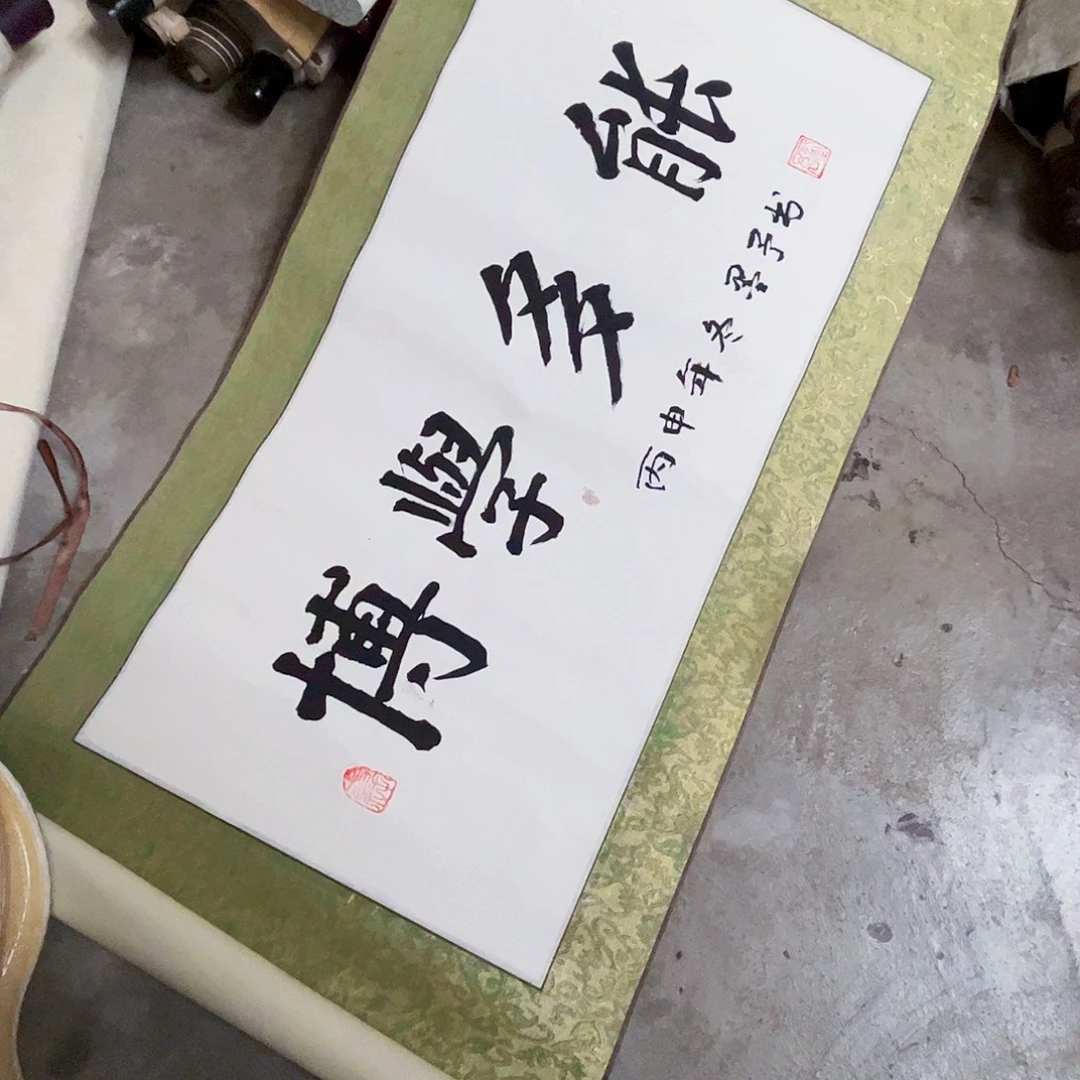 博學多能
丙申年冬墨子书